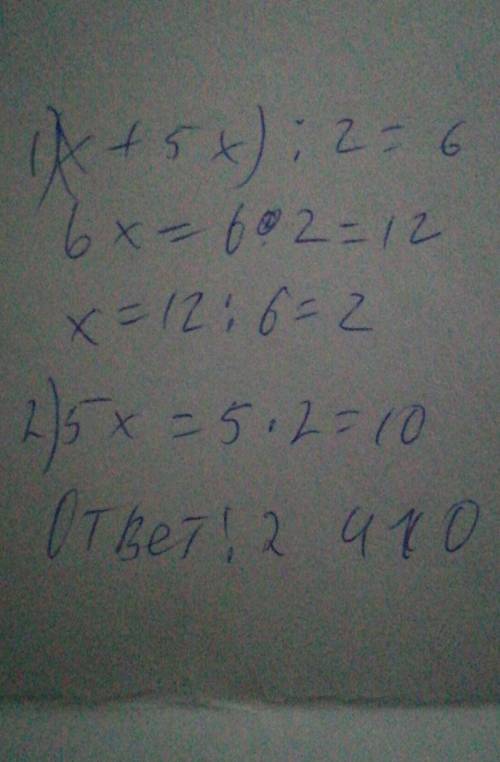 1)(x + 5x) : 2 = 6
6x = 6 · 2 = 12
x = 12 : 6 = 2
2) 5x = 5 · 2 = 10
Ответ: 2 и 10